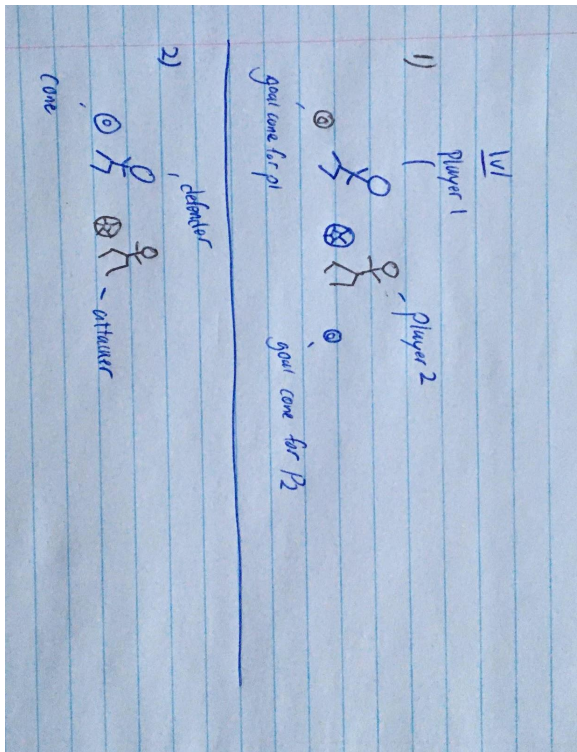 1v1
1)
Player 1
Player 2
goal cone for p1
goal cone for P2
2)
defender
Cone
attacker